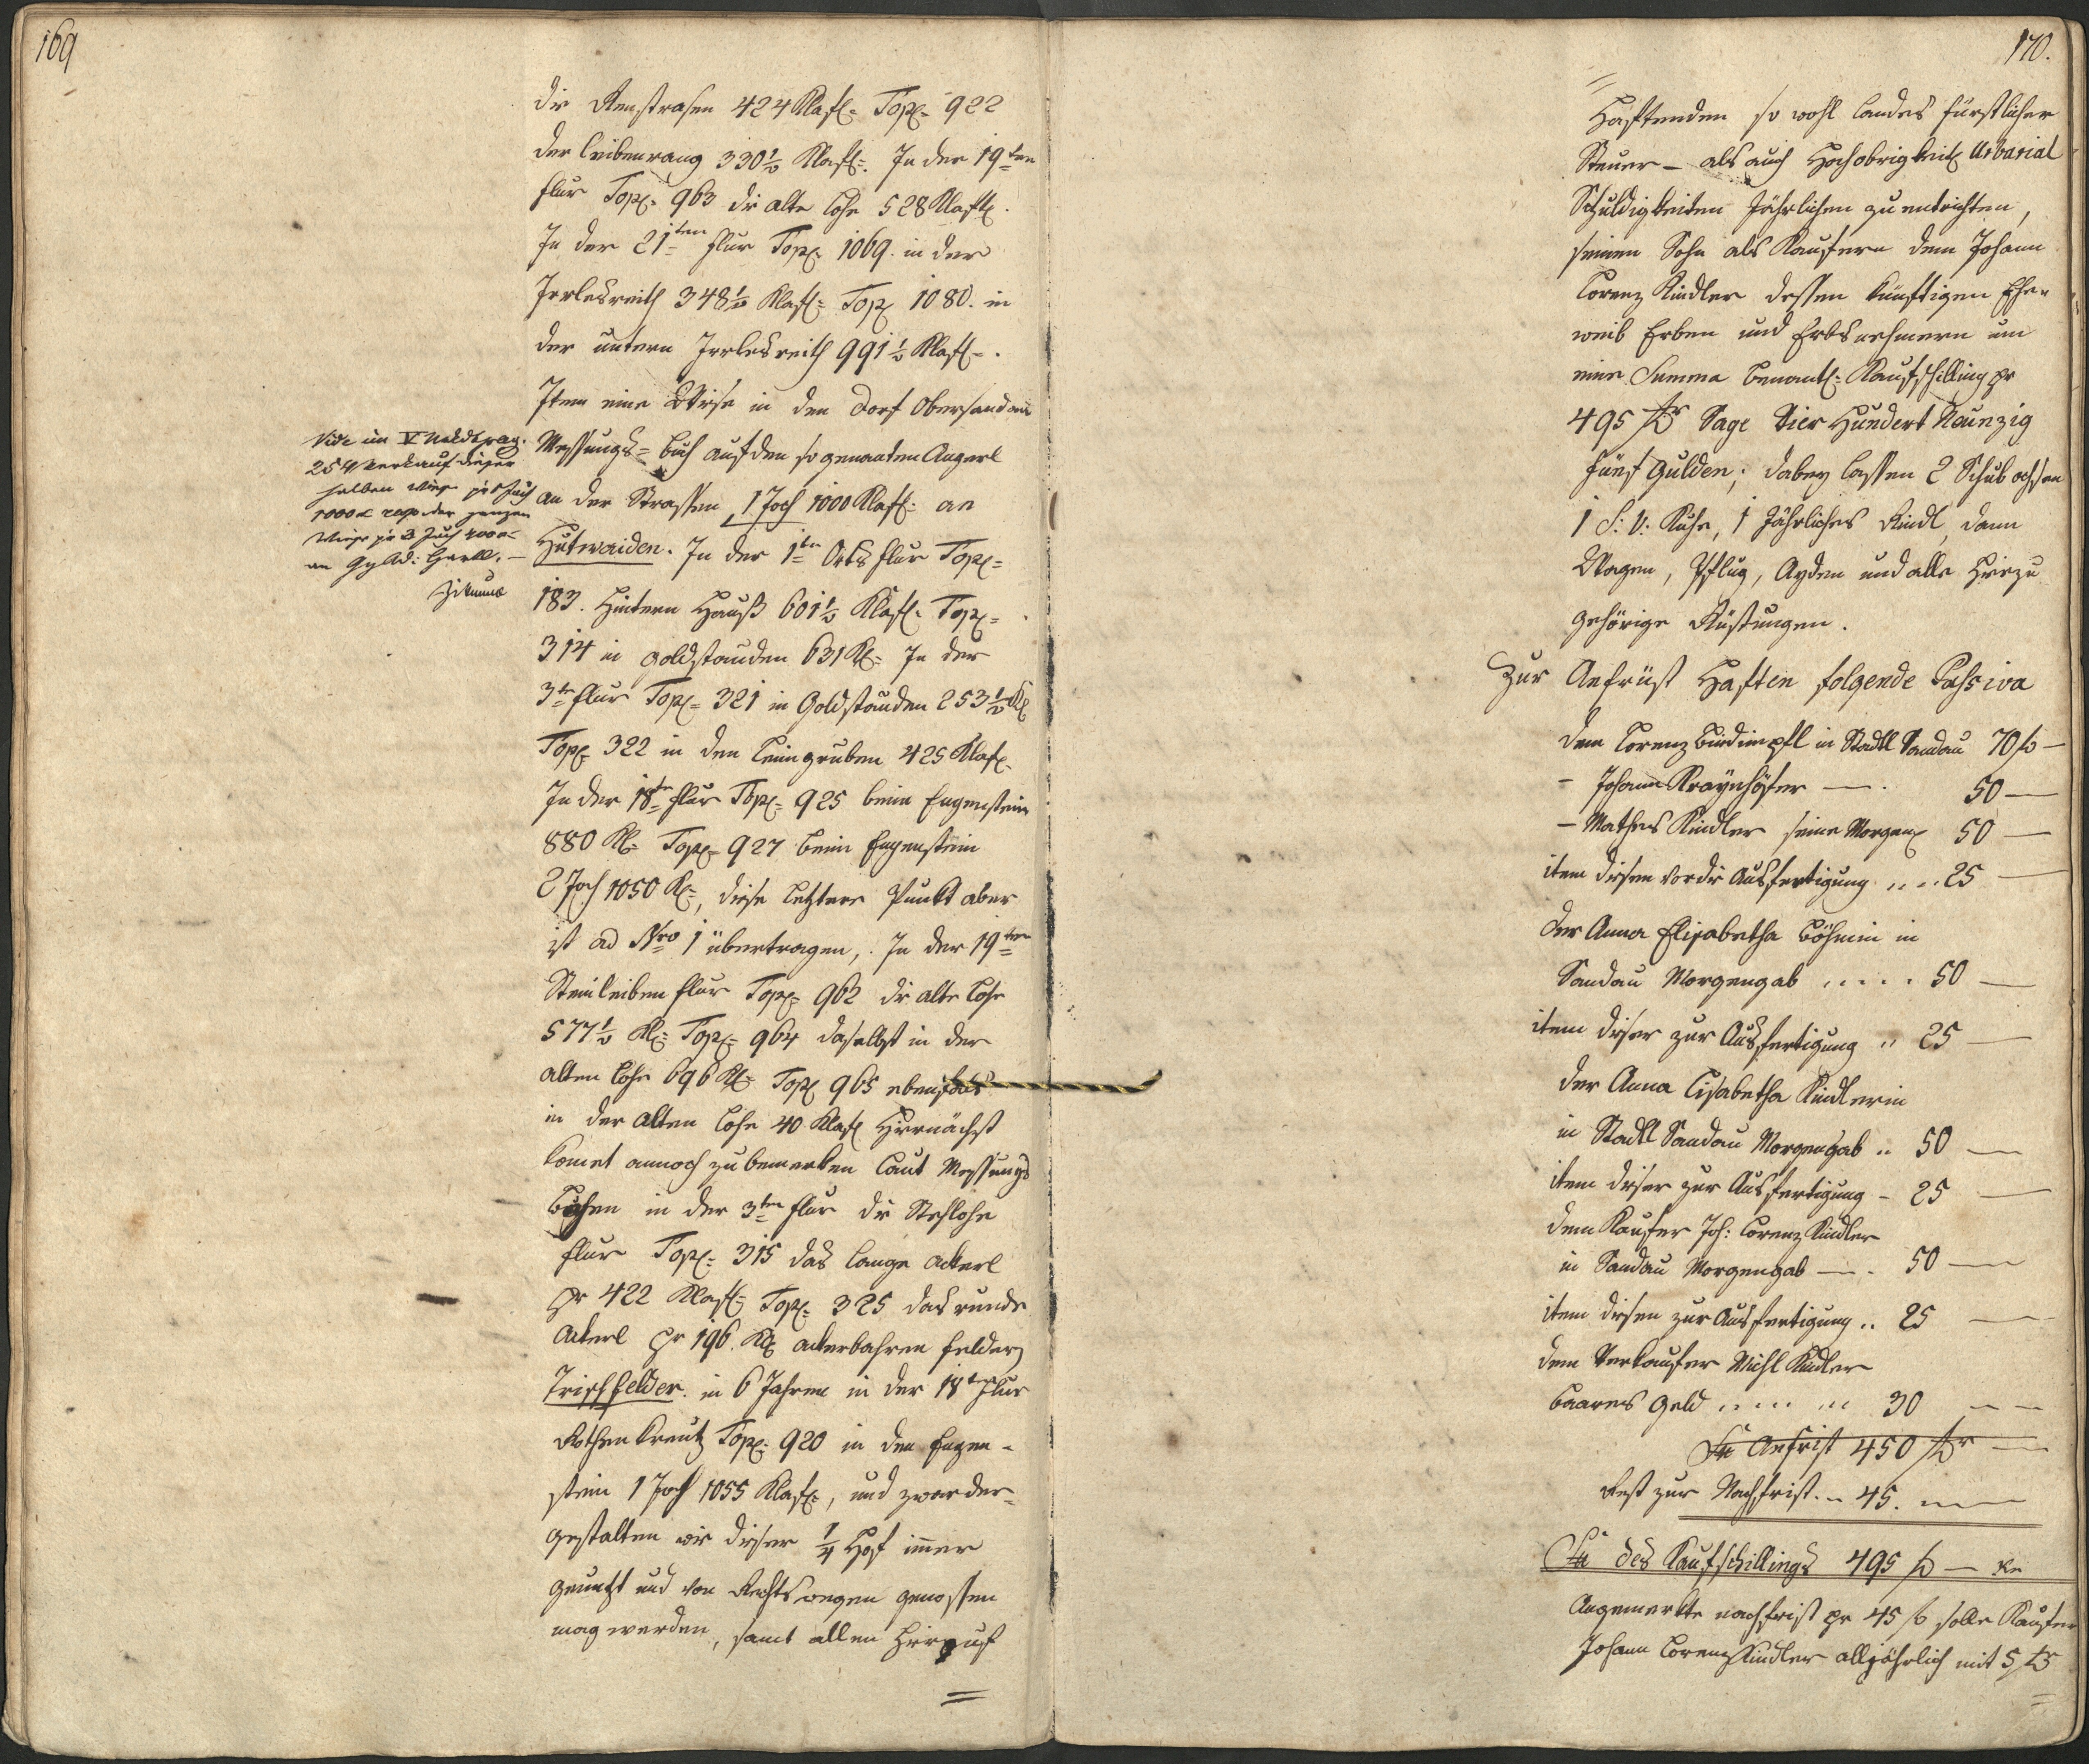 169
die Renstrasen 424 Klaft= Top= 922
der Leibenrang 330½ Klaft=. In der 19ten
Flur Top= 963 die alte Lohe 528 Klaft.
In der 21ten Flur Top= 1069. in der
Irrlesreith 348½ Klaft= Top 1080. in
der untern Irrlesreith 991½ Klaft=.
Item eine Wiese in den Dorf Obersandau
Messungs=buch auf den so genanten Angerl
an der Strassen 1 Joch 1000 Klaft= an
Hutwaiden. In der 1te Orts Flur Top=
183. Hintern Hauß 601½ Klaft= Top=
314 in Goldstauden 631 Kl= In der
3te Flur Top= 321 in Goldstauden 253½ Kl
Top= 322 in den Leimgruben 425 Klaft.
In der 18te Flur Top= 925 beim Engenstein
880 Kl= Top= 927 beim Engenstein
2 Joch 1050 Kl=, diese letztere Punkt aber
ist ad Nro 1 übertragen, . In der 19ten
Steinleiben Flur Top= 962 die alte Lohe
577½ Kl= Top= 964 daselbst in der
alten Lohe 696 Kl= Top 965 ebenfals
in der alten Lohe 40 Klaft Hiernächst
komet annoch zu bemerken laut Messungs
Büchen in der 3ten Flur die Stehlohe
Flur Top= 315 das lange Ackerl
pr 422 Klaft= Top= 325 das runde
Ackerl pr 196. Kl= ackerbahren Felder
Trischfelder. in 6 Jahren in der 18te Flur
Rothen Kreutz Top= 920 in den Engen=
stein 1 Joch 1055 Klaft=, und zwar der=
gestalten wie dieser ¼ Hof immer
genutzt und von Rechtswegen genossen
mag werden, samt allen hierauf
=
Vide im V pag.
254 Verkauf dieser
halben Wiese pr 1 Joch
1000 der ganzen
Wiese pr 3 Joch 400
an
170.
=
Haftenden so wohl Landes fürstlicher
Steuer – als auch Hochobrigkeitl Urbarial
Schuldigkeiten Jährlichen zu entrichten,
seinen Sohn als Kaufern dem Johann
Lorenz Kindler dessen künftigen Ehe=
weib Erben und Erbsnehmern um
eine Summa benantl= Kaufschilling pr
495 fr Sage Vier Hundert Neunzig
fünf Gulden; dabey lassen 2 Schubochsen
1 S: V: Kuhe, 1 Jähriches Rindl, dann
Wagen, Pflug, Ayden und alle Hierzu
gehörige Rüstungen.
Zur Anfrüst Haften folgende Passiva
dem Lorenz in Stadtl Sandau 70 f –
– Johann — 50 —
– Mathes Kindler seine Morgen 50 —
item diesem vor die Ausfertigung .... 25 —
der Anna Elisabetha Böhmin in
Sandau Morgengab ..... 50 —
item dieser zur Ausfertigung .. 25 —
der Anna Lisabetha Kindlerin
in Stadtl Sandau Morgengab .. 50 —
item dieser zur Ausfertigung – 25 —
dem Kaufer Joh: Lorenz Kindler
in Sandau Morgengab — . 50 —
item diesen zur Ausfertigung .. 25 —
dem Verkaufer Michl Kindler
baares Geld ....... 30 — —
Su Anfrist 450 fr —
Rest zur Nachfrist .. 45. —
Su des Kaufschillings 495 f — Kr
Angemerkte nachfrist pr 45 f solle Kaufer
Johann Lorenz Kindler alljährlich mit 5 fr
=